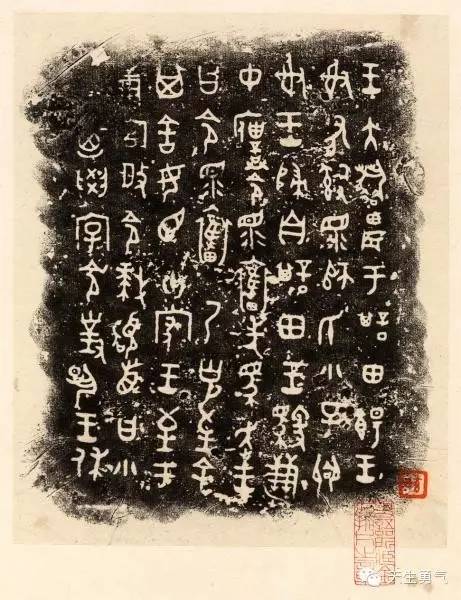 王大耤農于諆田餳王
射有𤔲眔師氏小子會
射王歸自諆田王馭溓
中僕令眔奮先馬走王
曰令眔奮乃克至余
其舍女臣卅家王至于
溓宮𢼄令拜稽首曰小
子迺學令對揚王休
天生勇气